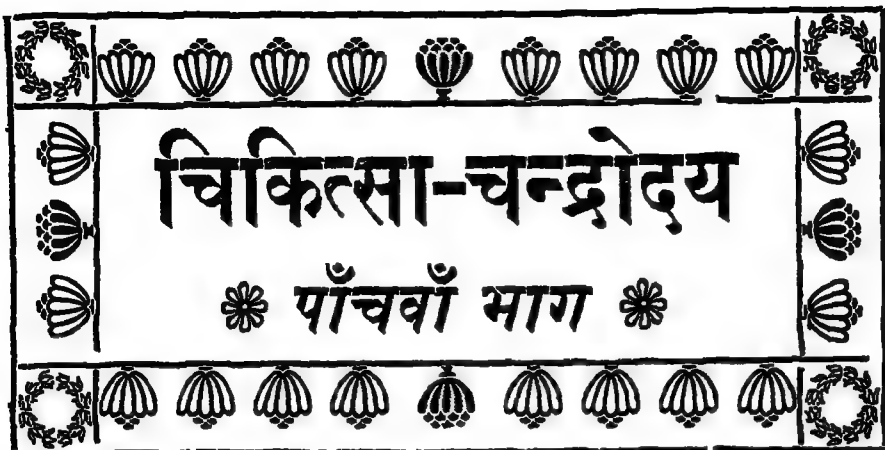 चिकित्सा-चन्द्रोदय
पाँचवाँ भाग